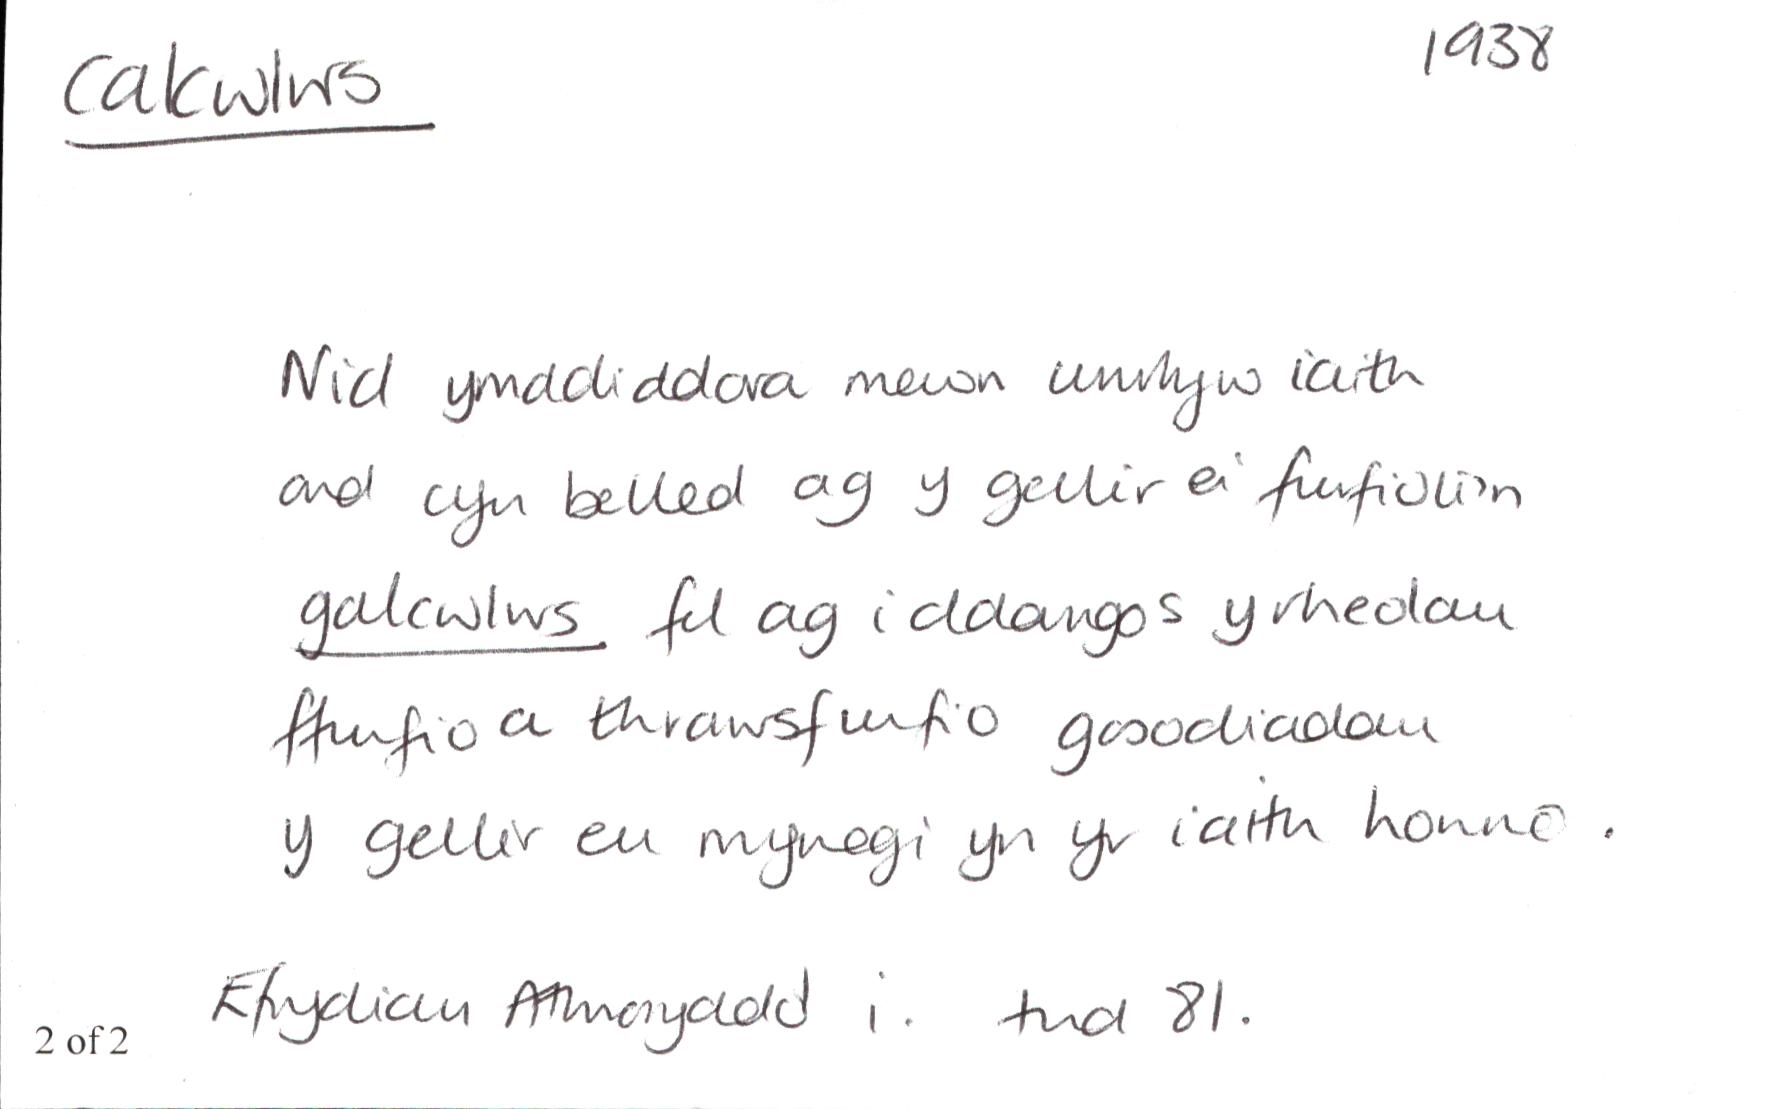 calcwlws
1938
Nid ymddiddora mewn unrhyw iaith
ond cyn belled ag y gellir ei ffurfiolin
galcwlws fel ag i ddangos y rheolau
ffurfio a thrawsfurfio gosodiadau
y gellir eu mynegi yn yr iaith honno.
Efrydiau Athronyddol i. tud 81.
2 of 2